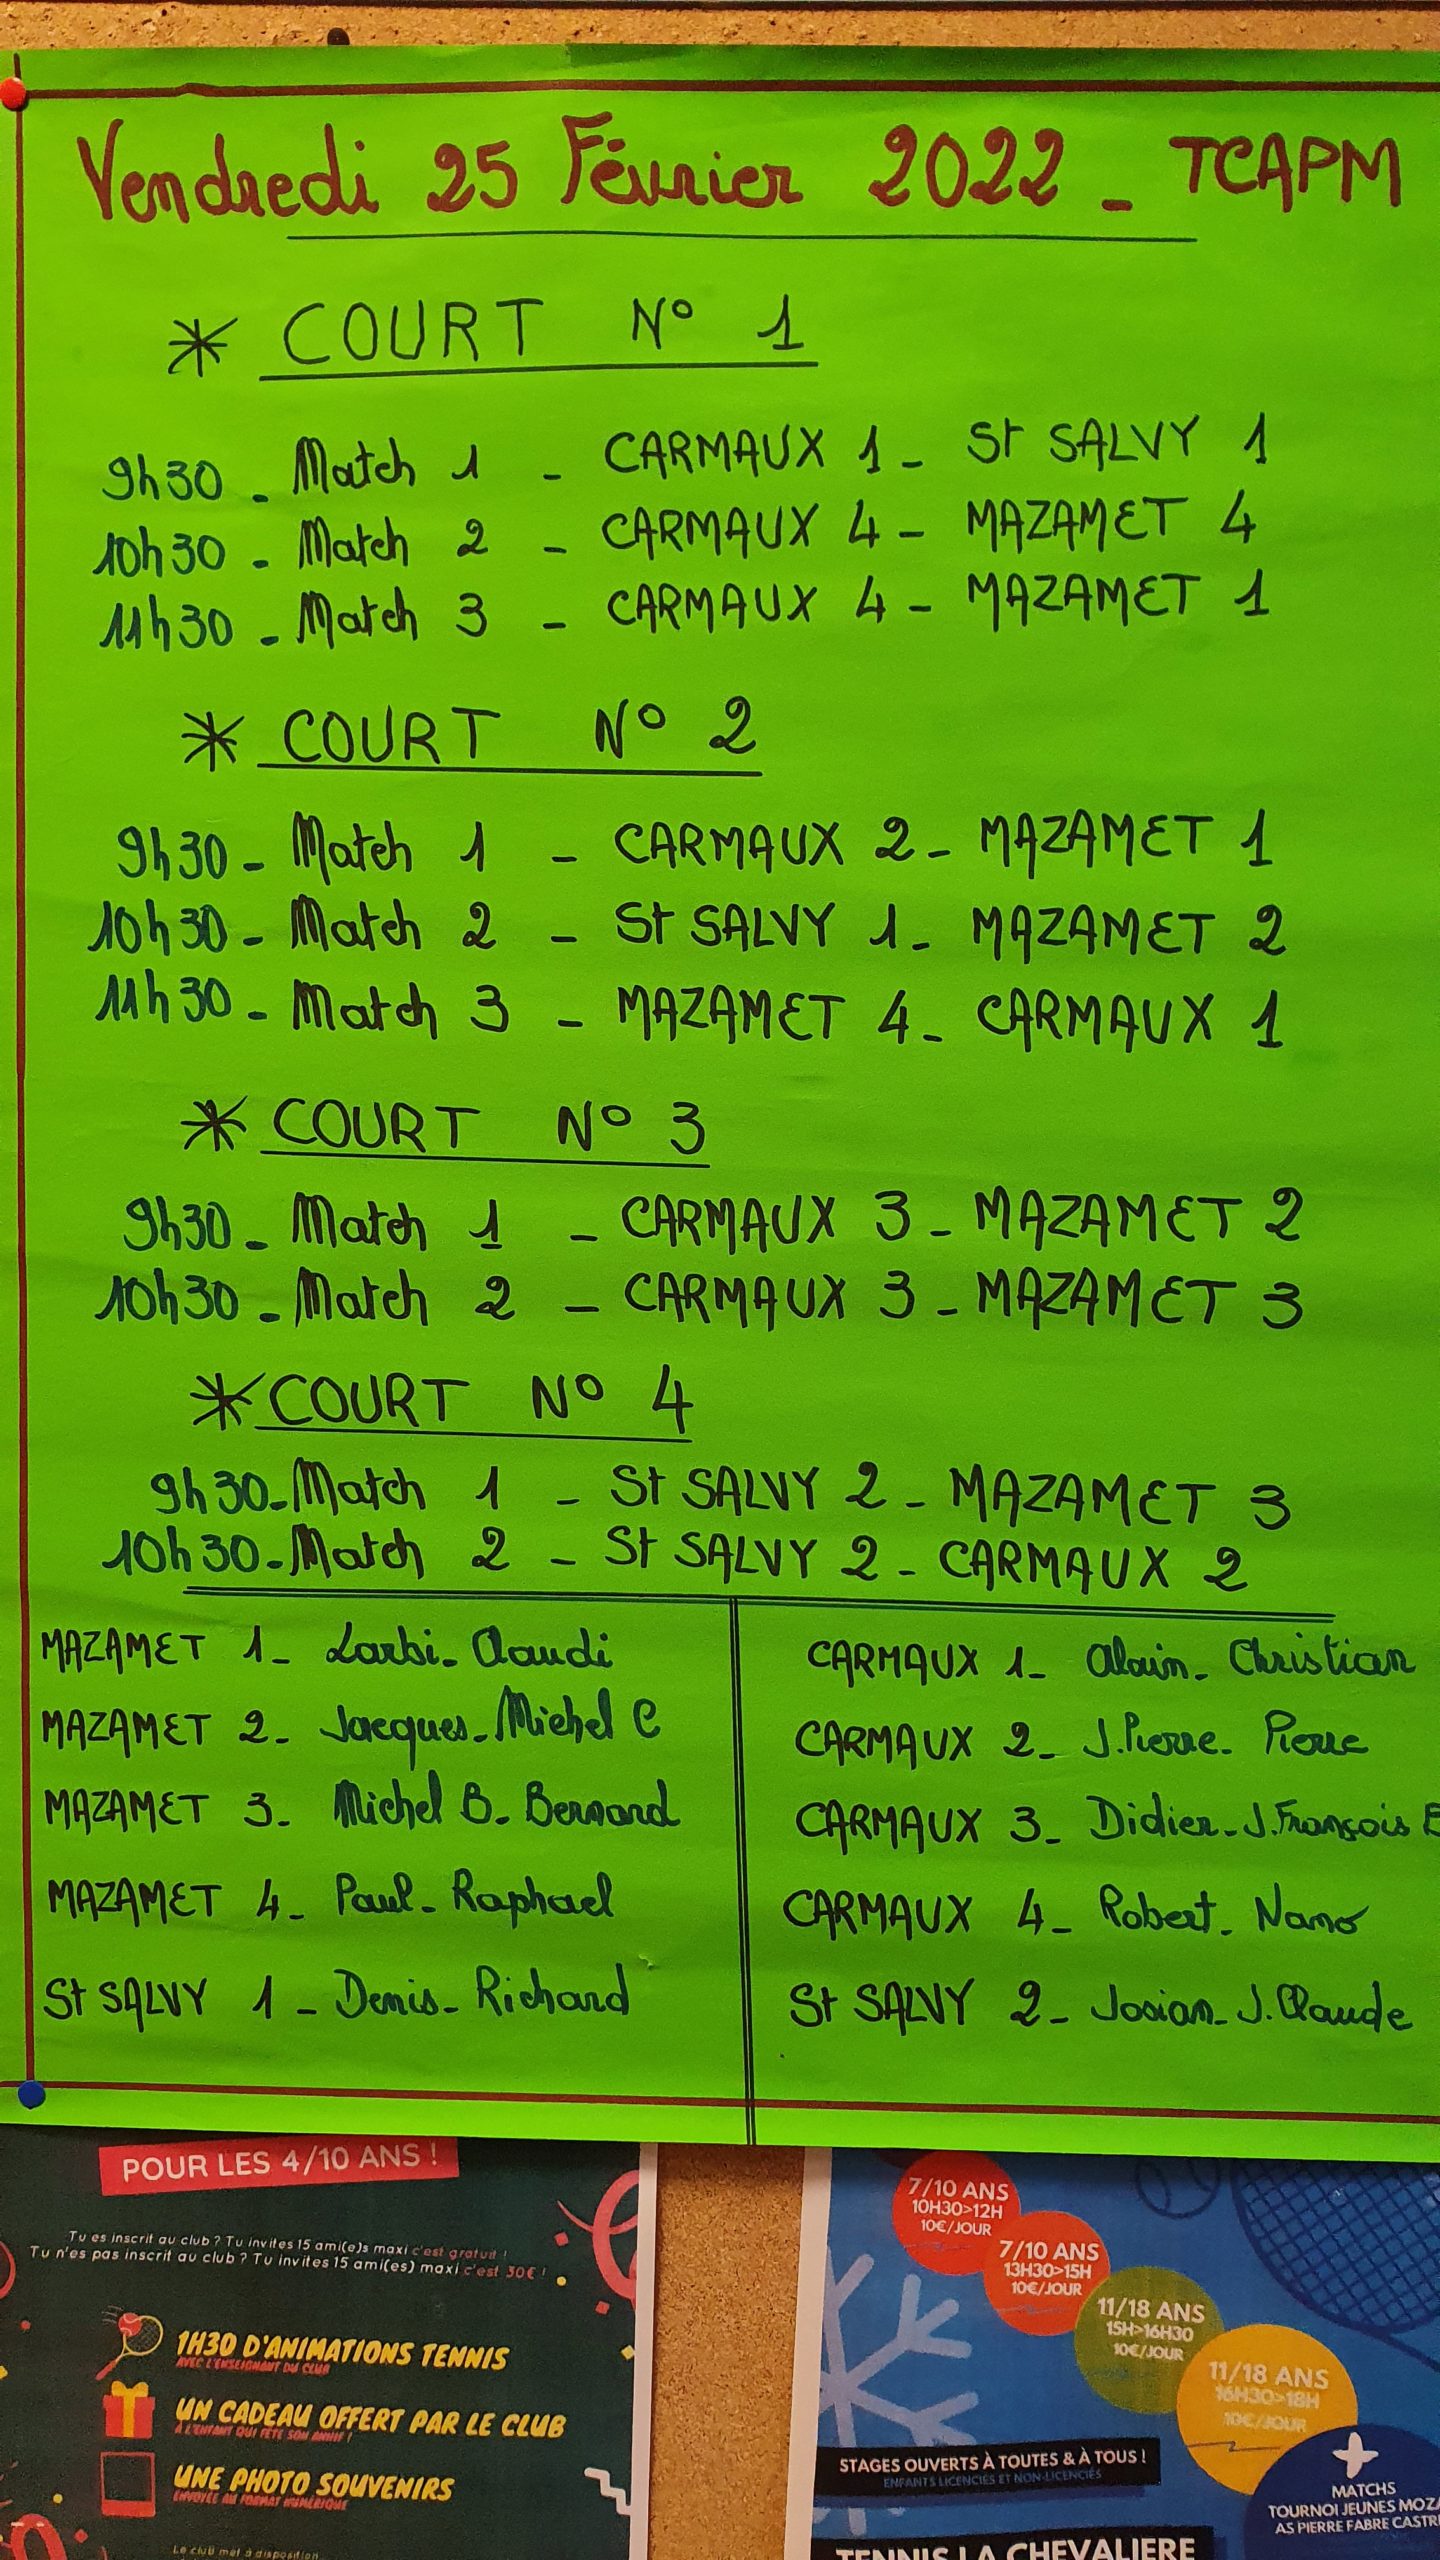 Vendredi 25 Février 2022 - TCAPM
* COURT N° 1
9h30 - Match 1 - CARMAUX 1 - St SALVY 1
10h30 - Match 2 - CARMAUX 4 - MAZAMET 4
11h30 - Match 3 - CARMAUX 4 - MAZAMET 1
* COURT N° 2
9h30 - Match 1 - CARMAUX 2 - MAZAMET 1
10h30 - Match 2 - St SALVY 1 - MAZAMET 2
11h30 - Match 3 - MAZAMET 4 - CARMAUX 1
* COURT N° 3
9h30 - Match 1 - CARMAUX 3 - MAZAMET 2
10h30 - Match 2 - CARMAUX 3 - MAZAMET 3
* COURT N° 4
9h30 - Match 1 - St SALVY 2 - MAZAMET 3
10h30 - Match 2 - St SALVY 2 - CARMAUX 2
MAZAMET 1 - Larbi - Claudi
MAZAMET 2 - Jacques - Michel C
MAZAMET 3 - Michel B - Bernard
MAZAMET 4 - Paul - Raphael
St SALVY 1 - Denis - Richard
CARMAUX 1 - Alain - Christian
CARMAUX 2 - J.Pierre - Pierre
CARMAUX 3 - Didier - J.François
CARMAUX 4 - Robert - Nano
St SALVY 2 - Josian - J.Claude
POUR LES 4/10 ANS !
Tu es inscrit au club ? Tu invites 15 ami(e)s maxi c'est gratuit !
Tu n'es pas inscrit au club ? Tu invites 15 ami(es) maxi c'est 30€ !
1H30 D'ANIMATIONS TENNIS
AVEC L'ENSEIGNANT DU CLUB
UN CADEAU OFFERT PAR LE CLUB
À L'ENFANT QUI FÊTE SON ANNIF !
UNE PHOTO SOUVENIRS
ENVOYÉE AU FORMAT NUMÉRIQUE
Le club met à disposition
7/10 ANS
10H30>12H
10€/JOUR
7/10 ANS
13H30>15H
10€/JOUR
11/18 ANS
15H>16H30
10€/JOUR
11/18 ANS
16H30>18H
10€/JOUR
STAGES OUVERTS À TOUTES & À TOUS !
ENFANTS LICENCIÉS ET NON-LICENCIÉS
MATCHS
TOURNOI JEUNES
AS PIERRE FABRE
TENNIS LA CHEVALIERE